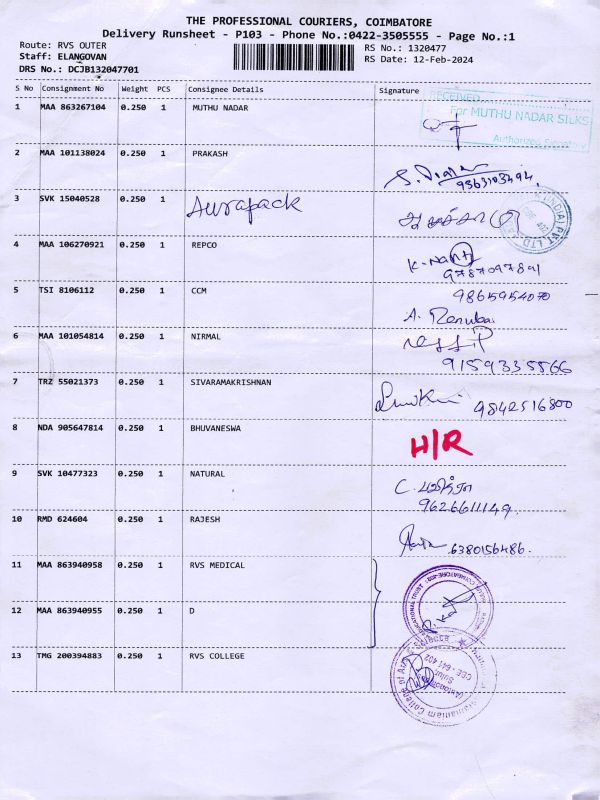 THE PROFESSIONAL COURIERS, COIMBATORE
Delivery Runsheet - P103 - Phone No.:0422-3505555 - Page No.:1
Route: RVS OUTER RS No.: 1320477
Staff: ELANGOVAN RS Date: 12-Feb-2024
DRS No.: DCJB132047701
S No Consignment No Weight PCS Consignee Details Signature
RECEIVED
1 MAA 863267104 0.250 1 MUTHU NADAR
For MUTHU NADAR SILKS
Authorized Signatory
2 MAA 101138024 0.250 1 PRAKASH
9363103494
3 SVK 15040528 0.250 1 Aurapack
(INDIA) PVT LTD
4 MAA 106270921 0.250 1 REPCO
9787097891
5 TSI 8106112 0.250 1 CCM 9865954070
A. Renuka
6 MAA 101054814 0.250 1 NIRMAL
9159335566
7 TRZ 55021373 0.250 1 SIVARAMAKRISHNAN 9842516800
8 NDA 905647814 0.250 1 BHUVANESWA H/R
9 SVK 10477323 0.250 1 NATURAL
9626611149
10 RMD 624604 0.250 1 RAJESH
6380156486
11 MAA 863940958 0.250 1 RVS MEDICAL
12 MAA 863940955 0.250 1 D
13 TMG 200394883 0.250 1 RVS COLLEGE
College of Arts & Science
(Autonomous)
Sulur
CBE - 641 402